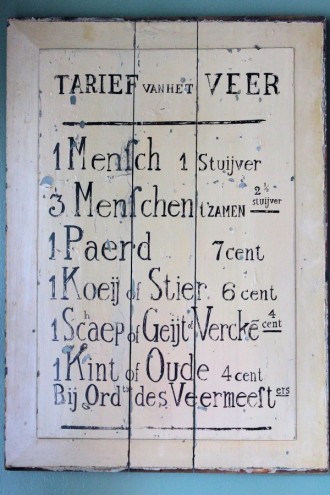 TARIEF VAN HET VEER
1 Menſch 1 Stuijver
3 Menſchen t'ZAMEN 2½ stuijver
1 Paerd 7 cent
1 Koeij of Stier 6 cent
1 Schaep of Geijt of Verckē 4 cent
1 Kint of Oude 4 cent
Bij Ord des Veermeeſters